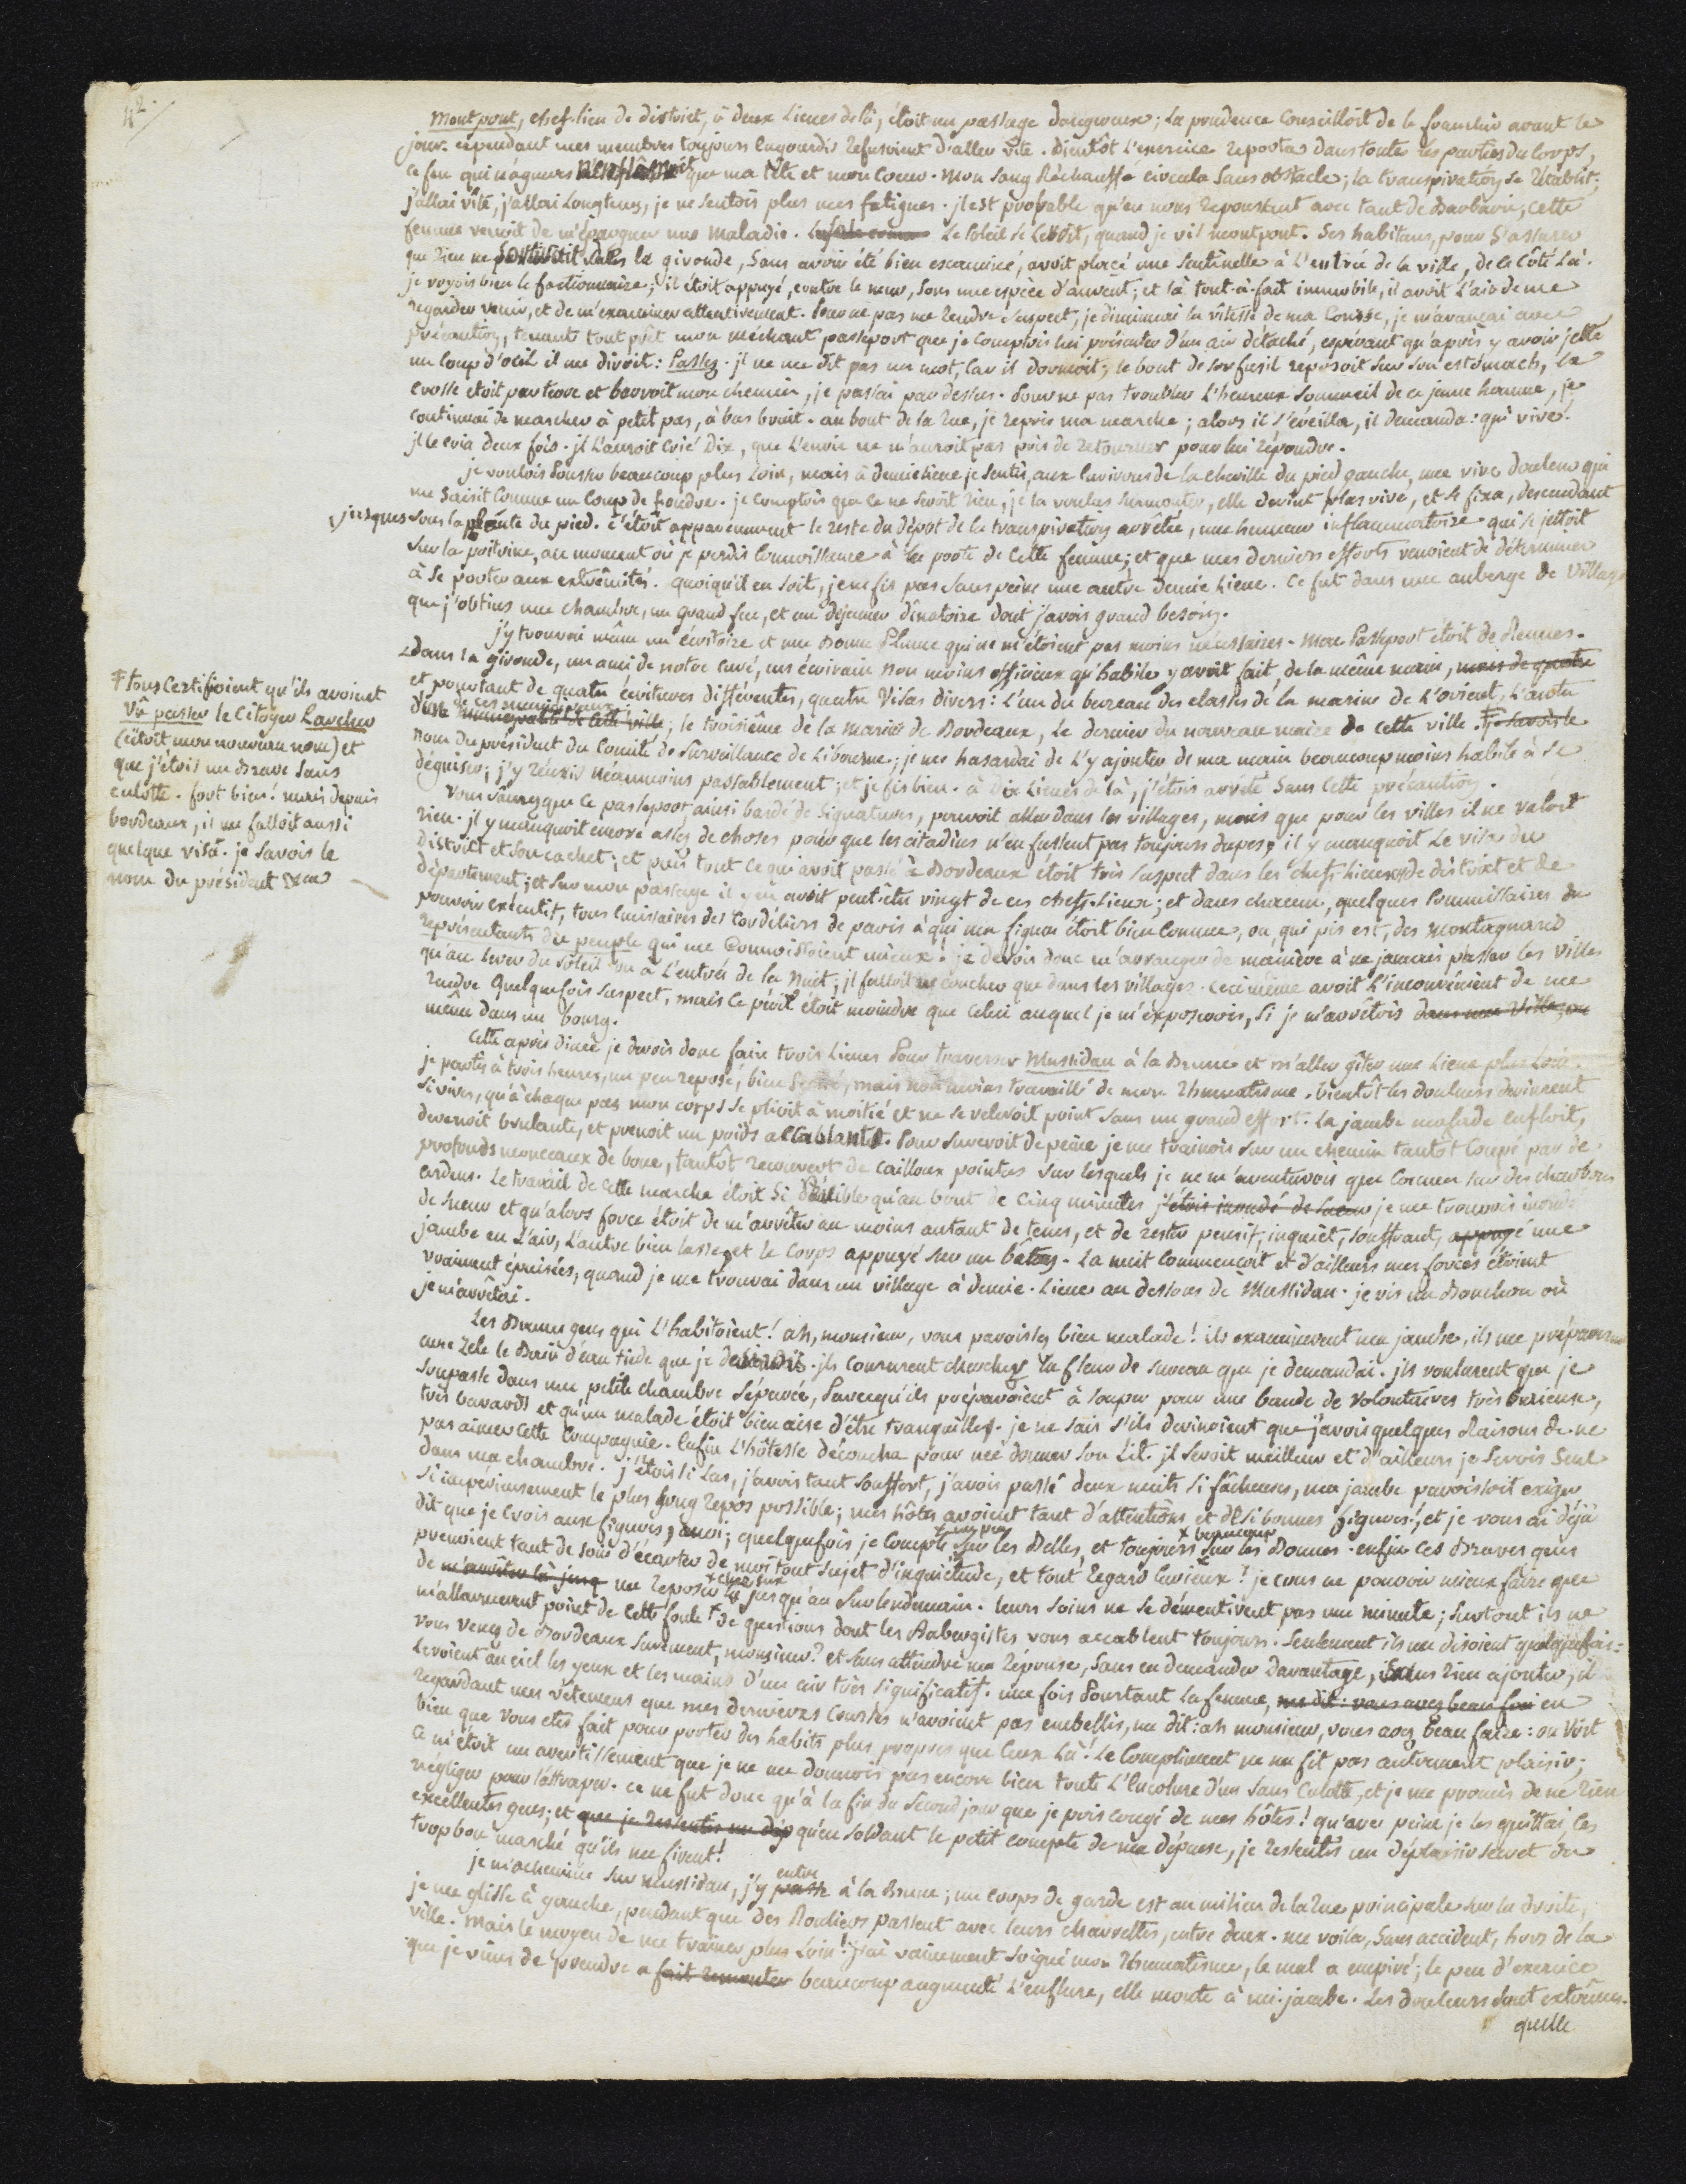 42.
Montpont, chef-lieu de district, à deux Lieues de là, étoit un passage dangereux; la prudence Conseilloit de le franchir avant le
jour. cependant mes membres toujours Engourdis Refusoient d'aller vite. bientôt l'exercice reporta dans toutes les parties du Corps,
ce feu qui n'agueres n'enflâmoit que ma tête et mon Coeur. Mon Sang Réchauffé circula Sans obstacle; la transpiration se Rétablit;
j'allai vîte, j'allai Longtems, je ne sentois plus mes fatigues. il est probable qu'en nous repoussant avec tant de Barbarie, cette
femme venoit de m'épargner une Maladie. Le Soleil se Levoit, quand je vis montpont. Ses habitans, pour S'assurer
que Rien ne Sortiroit de la gironde, Sans avoir été bien examiné, avoit placé une Sentinelle à L'entrée de la ville, de ce Côté Là.
je voyois bien le factionnaire; S'il étoit appuyé, contre le mur, sous une espèce d'auvent; et là tout-à-fait immobile, il avoit L'air de me
regarder venir, et de m'examiner attentivement. Pour ne pas me Rendre Suspect, je diminuai la vîtesse de ma Course, je m'avançai avec
précaution, tenant tout prêt mon méchant passeport que je comptois lui présenter d'un air détaché, espérant qu'après y avoir jetté
un Coup d'oeil il me diroit: Passez. il ne me dit pas un mot, Car il dormoit; le bout de son fusil reposoit Sur Son estomach, la
crosse étoit par terre et barroit mon chemin, je passai par dessus. Pour ne pas troubler L'heureux Sommeil de ce jeune homme, je
Continuai de marcher à petit pas, à bas bruit. au bout de la Rue, je repris ma marche; alors il S'éveilla, il demanda: qui vive?
il le cria deux fois. il L'auroit crié Dix, que L'envie ne m'auroit pas pris de retourner pour lui répondre.
je voulois Pousser beaucoup plus Loin, mais à demie lieue je sentis, aux Environs de la cheville du pied gauche, une vive douleur qui
me Saisit Comme un Coup de foudre. je comptois que ce ne seroit rien, je la voulus Surmonter, elle devint plus vive, et se fixa, descendant
jusques sous la plante du pied. c'étoit apparemment le reste du dépôt de la transpiration arrêtée, une humeur inflammatoire qui se jettoit
Sur la poitrine, au moment où je perdis Connoissance à la porte de Cette femme; et que mes derniers efforts venoient de déterminer
à Se porter aux extrêmités. quoiqu'il en soit, je ne fis pas Sans peine une autre demie Lieue. Ce fut dans une auberge de Village
que j'obtins une chambre, un grand feu, et un déjeuner dînatoire dont j'avois grand besoin.
j'y trouvai même un écritoire et une Bonne Plume qui ne m'étoient pas moins nécessaires. Mon Passeport étoit de Rennes.
dans la gironde, un ami de notre Curé, un écrivain non moins officieux qu'habile y avoit fait, de la même main, mais de quatre
et pourtant de quatre écritures différentes, quatre Visas divers: L'un du bureau des classes de la marine de L'orient, L'autre
d'un de ces municipaux municipalité de cette ville; le troisième de la Mairie de Bordeaux, le dernier du nouveau maire de cette ville. Ŧ je savois le
nom du président du Comité de Surveillance de Libourne; je me hasardai de L'y ajouter de ma main beaucoup moins habile à se
déguiser; j'y réussis néanmoins passablement; et je fis bien. à Dix Lieues de là, j'étois arrêté Sans Cette précaution.
Vous Sçaurez que ce passeport, ainsi bardé de Signatures, pouvoit aller dans les villages, mais que pour les villes il ne valoit
rien. il y manquoit encore assez de choses pour que les citadins n'en fussent pas toujours dupes; il y manquoit Le visa du
District et Son cachet; et puis tout ce qui avoit passé à Bordeaux étoit très Suspect dans les chefs-Lieux de district et de
département; et Sur mon passage il y en avoit peut-être vingt de ces chefs-Lieux; et dans chacun, quelques Commissaires du
pouvoir exécutif, tous Emissaires des Cordeliers de paris à qui ma figure étoit bien Connue, ou, qui pis est, des Montagnards
représentants du peuple qui me Connoissoient mieux. je devois donc m'arranger de manière à ne jamais passer les villes
qu'au lever du soleil ou à L'entrée de la Nuit; il falloit ne coucher que dans les villages. Ceci même avoit L'inconvénient de me
rendre Quelquefois suspect, mais ce péril étoit moindre que celui auquel je m'exposerois, Si je m'arrêtois dans une Ville, ou
même dans un bourg.
Cette après dinée je devois donc faire trois Lieues Pour traverser Mussidan à la Brune et m'aller gîter une Lieue plus Loin.
je partis à trois heures, un peu reposé, bien lesté, mais non moins travaillé de mon Rhumatisme. bientôt les douleurs devinrent
Si vives, qu'à chaque pas mon corps se plioit à moitié et ne se relevoit point sans un grand effort. La jambe malade enfloit,
devenoit brulante, et prenoit un poids accablant. Pour Surcroit de peine je me trainois sur un chemin tantôt Coupé par de
profonds monceaux de boue, tantôt recouvert de Cailloux pointus sur lesquels je ne m'aventurois que Comme sur des charbons
ardens. Le travail de cette marche étoit Si pénible qu'au bout de cinq minutes j'étois inondé de sueur je me trouvois inondé
de sueur et qu'alors force étoit de m'arrêter au moins autant de tems, et de rester pensif, inquiet, souffrant, appuyé une
jambe en L'air, L'autre bien lasse, et le Corps appuyé sur un bâton. La nuit Commençoit et d'ailleurs mes forces étoient
vraiment épuisées, quand je me trouvai dans un village à demie-Lieue au dessous de Mussidan. je vis un Bouchon où
je m'arrêtai.
Les Braves gens qui L'habitoient! ah, monsieur, vous paroissez bien malade! ils examinerent ma jambe, ils me préparerent
avec Zèle le Bain d'eau tiède que je desirois. ils Coururent chercher la fleur de Sureau que je demandai. ils voulurent que je
Soupasse dans une petite chambre séparée, Parcequ'ils préparoient à souper pour une bande de Volontaires très Curieux,
très bavards et qu'un malade étoit bien aise d'être tranquille. je ne sais s'ils devinoient que j'avois quelques Raisons de ne
pas aimer cette Compagnie. Enfin L'hôtesse découcha pour me donner son Lit. il seroit meilleur et d'ailleurs je serois Seul
dans ma chambre. j'étois si Las, j'avois tant souffert, j'avois passé deux nuits si fâcheuses, ma jambe paroissoit exiger
si impérieusement le plus Long repos possible; mes hôtes avoient tant d'attentions et de si bonnes figures!, et je vous ai déjà
dit que je crois aux figures, moi; quelquefois je Compte un peu sur les Belles, et toujours beaucoup sur les Bonnes. enfin ces Braves gens
prenoient tant de soin d'écarter de moi tout Sujet d'inquiétude, et tout Regard Curieux! je crus ne pouvoir mieux faire que
de m'arrêter là jusq me Reposer chez eux jusqu'au Surlendemain. leurs soins ne se démentirent pas une minute; Surtout ils ne
m'allarmerent point de cette foule de questions dont les Aubergistes vous accablent toujours. Seulement ils me disoient quelquefois:
Vous venez de Bordeaux Surement, monsieur? et sans attendre ma Réponse, Sans en demander davantage, Sans Rien ajouter, ils
Levoient au ciel les yeux et les mains d'un air très significatif. une fois Pourtant la femme, me dit: vous avez beau fai en
regardant mes vêtemens que mes dernieres Courses n'avoient pas embellis, me dit: ah monsieur, vous avez beau faire: on Voit
bien que vous etes fait pour porter des habits plus propres que Ceux Là! Le Compliment ne me fit pas autrement plaisir;
Ce m'étoit un avertissement que je ne me donnois pas encore bien toute L'Encolure d'un sans Culotte, et je me promis de ne Rien
négliger pour l'attraper. ce ne fut donc qu'à la fin du second jour que je pris congé de mes hôtes! qu'avec peine je les quittai, les
excellentes gens; et que je ressentis un dép qu'en soldant le petit compte de ma dépense, je ressentis un déplaisir secret du
trop bon marché qu'ils me firent!
je m'achemine sur mussidan, j'y passe entre à la Brune; un Corps de garde est au milieu de la Rue principale sur la droite,
je me glisse à gauche, pendant que des Rouliers passent avec leurs charrettes, entre deux. me voilà, Sans accident, hors de la
ville. Mais le moyen de me trainer plus Loin! j'ai vainement soigné mon Rhumatisme, le mal a empiré; le peu d'exercice
que je viens de prendre a fait remonter beaucoup augmenté L'enflure, elle monte à mi-jambe. Les douleurs sont extrêmes.
quelle
Ŧ tous Certifioient qu'ils avoient
Vû passer le Citoyen Larcher
(c'étoit mon nouveau nom) et
que j'étois un Brave Sans
culotte. fort bien! mais depuis
bordeaux, il me falloit aussi
quelque visa. je savois le
nom du président &ca